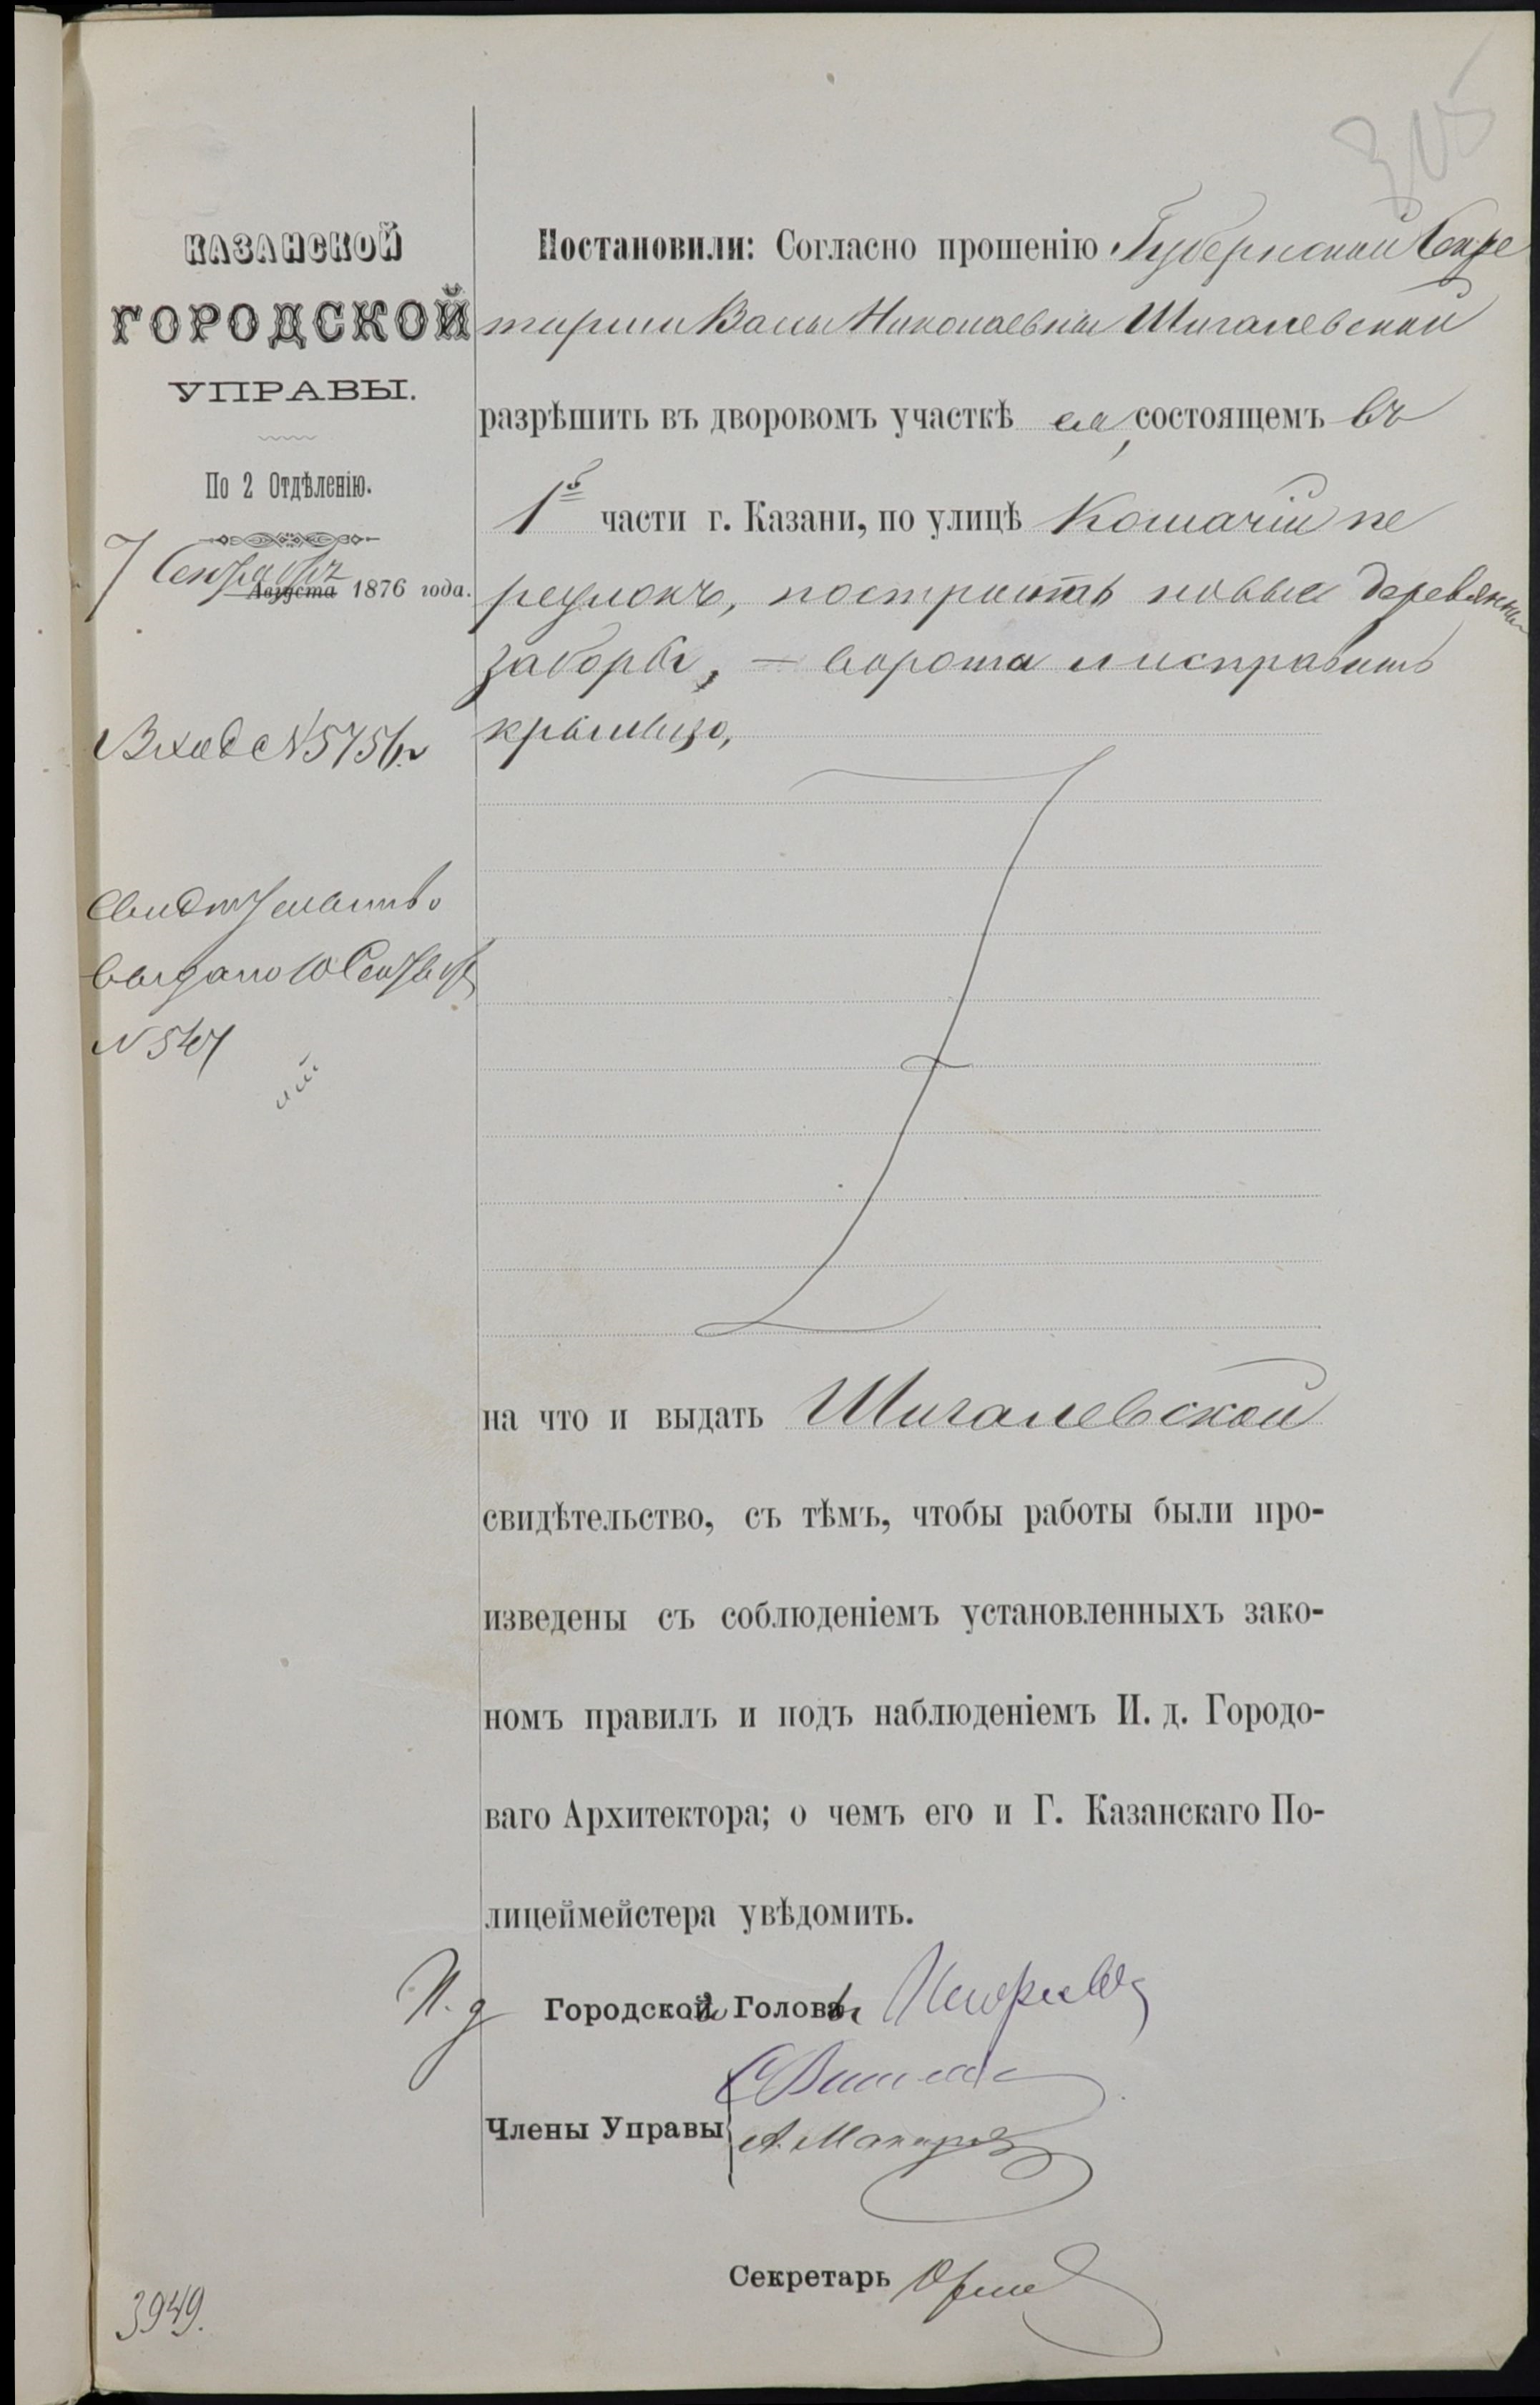 305
КАЗАНСКОЙ
ГОРОДСКОЙ
УПРАВЫ.
По 2 Отдѣленію.
7 Сентября
Августа 1876 года.
Вход №5756
Свидѣтельство
выдано 10 Сентября
№ 547
Постановили: Согласно прошенію Губернской Секре
тарши Николаевны Шигалевской
разрѣшить въ дворовомъ участкѣ ея, состоящемъ въ
1й части г. Казани, по улицѣ Кошачій пе
реулокъ, построить новые деревянные
заборы, – ворота и исправить
крыльцо,
на что и выдать Шигалевской
свидѣтельство, съ тѣмъ, чтобы работы были про-
изведены съ соблюденіемъ установленныхъ зако-
номъ правилъ и подъ наблюденіемъ И. д. Городо-
ваго Архитектора; о чемъ его и Г. Казанскаго По-
лицеймейстера увѣдомить.
И. д Городскаго Головы
Члены Управы
А. Макаров
Секретарь
3949.